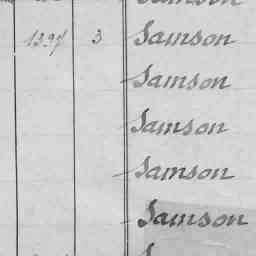 Samson
1397 3 Samson
Samson
Samson
Samson
Samson